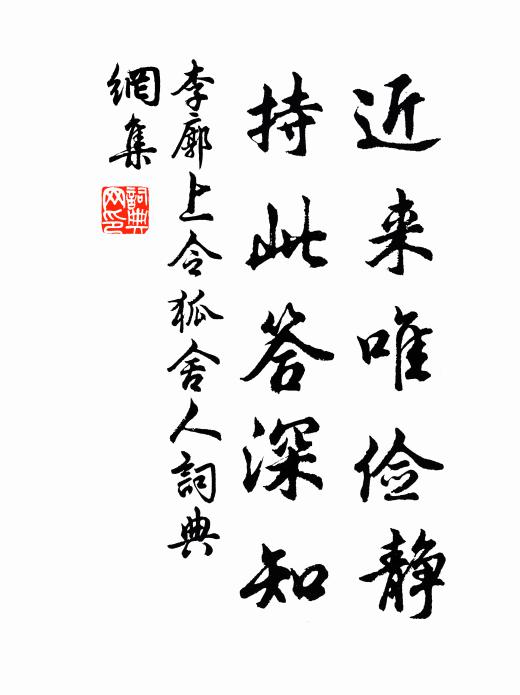 近来唯俭静
持此答深知
李廓上令狐舍人詞典
網集
詞典網印